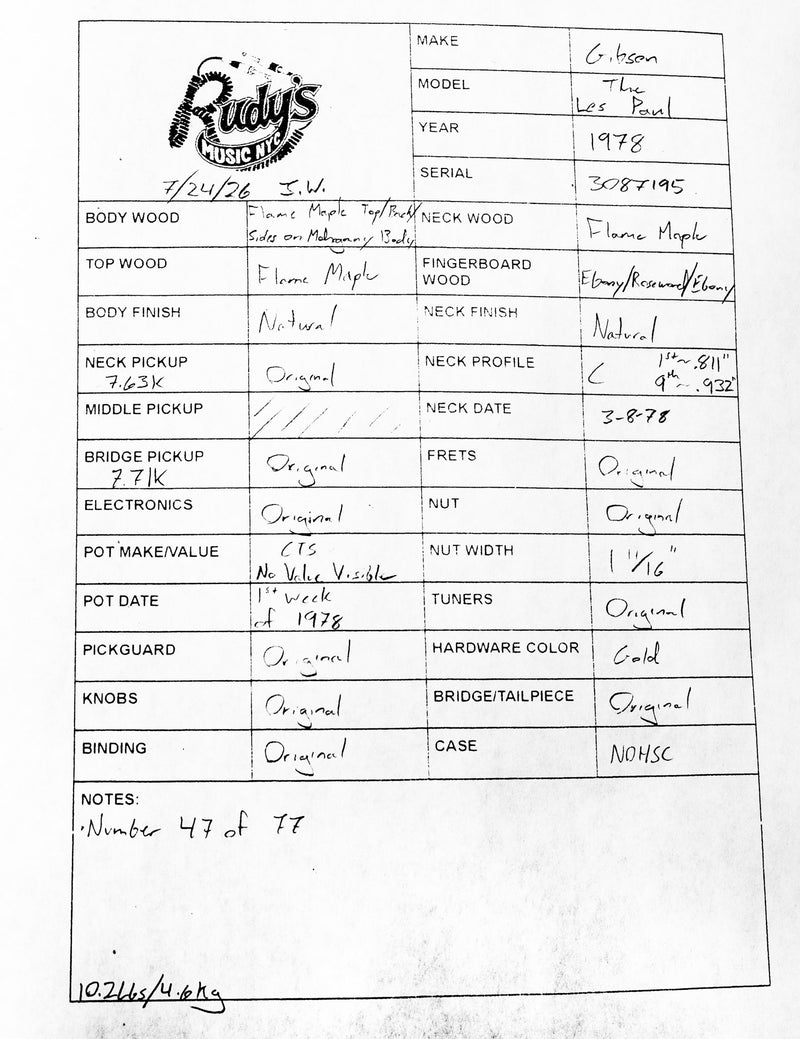 Rudy's
MUSIC NYC
7/24/26 J.W.
MAKE Gibson
MODEL The
Les Paul
YEAR 1978
SERIAL 3087195
BODY WOOD Flame Maple Top/Back/
Sides on Mahogany Body
NECK WOOD Flame Maple
TOP WOOD Flame Maple
FINGERBOARD
WOOD Ebony/Rosewood/Ebony
BODY FINISH Natural
NECK FINISH Natural
NECK PICKUP
7.63K Original
NECK PROFILE C 1st ~ .811"
9th ~ .932"
MIDDLE PICKUP / / / / /
NECK DATE 3-8-78
BRIDGE PICKUP
7.71K Original
FRETS Original
ELECTRONICS Original
NUT Original
POT MAKE/VALUE CTS
No Value Visible
NUT WIDTH 1 11/16"
POT DATE 1st week
of 1978
TUNERS Original
PICKGUARD Original
HARDWARE COLOR Gold
KNOBS Original
BRIDGE/TAILPIECE Original
BINDING Original
CASE NOHSC
NOTES:
·Number 47 of 77
10.2Lbs/4.6Kg